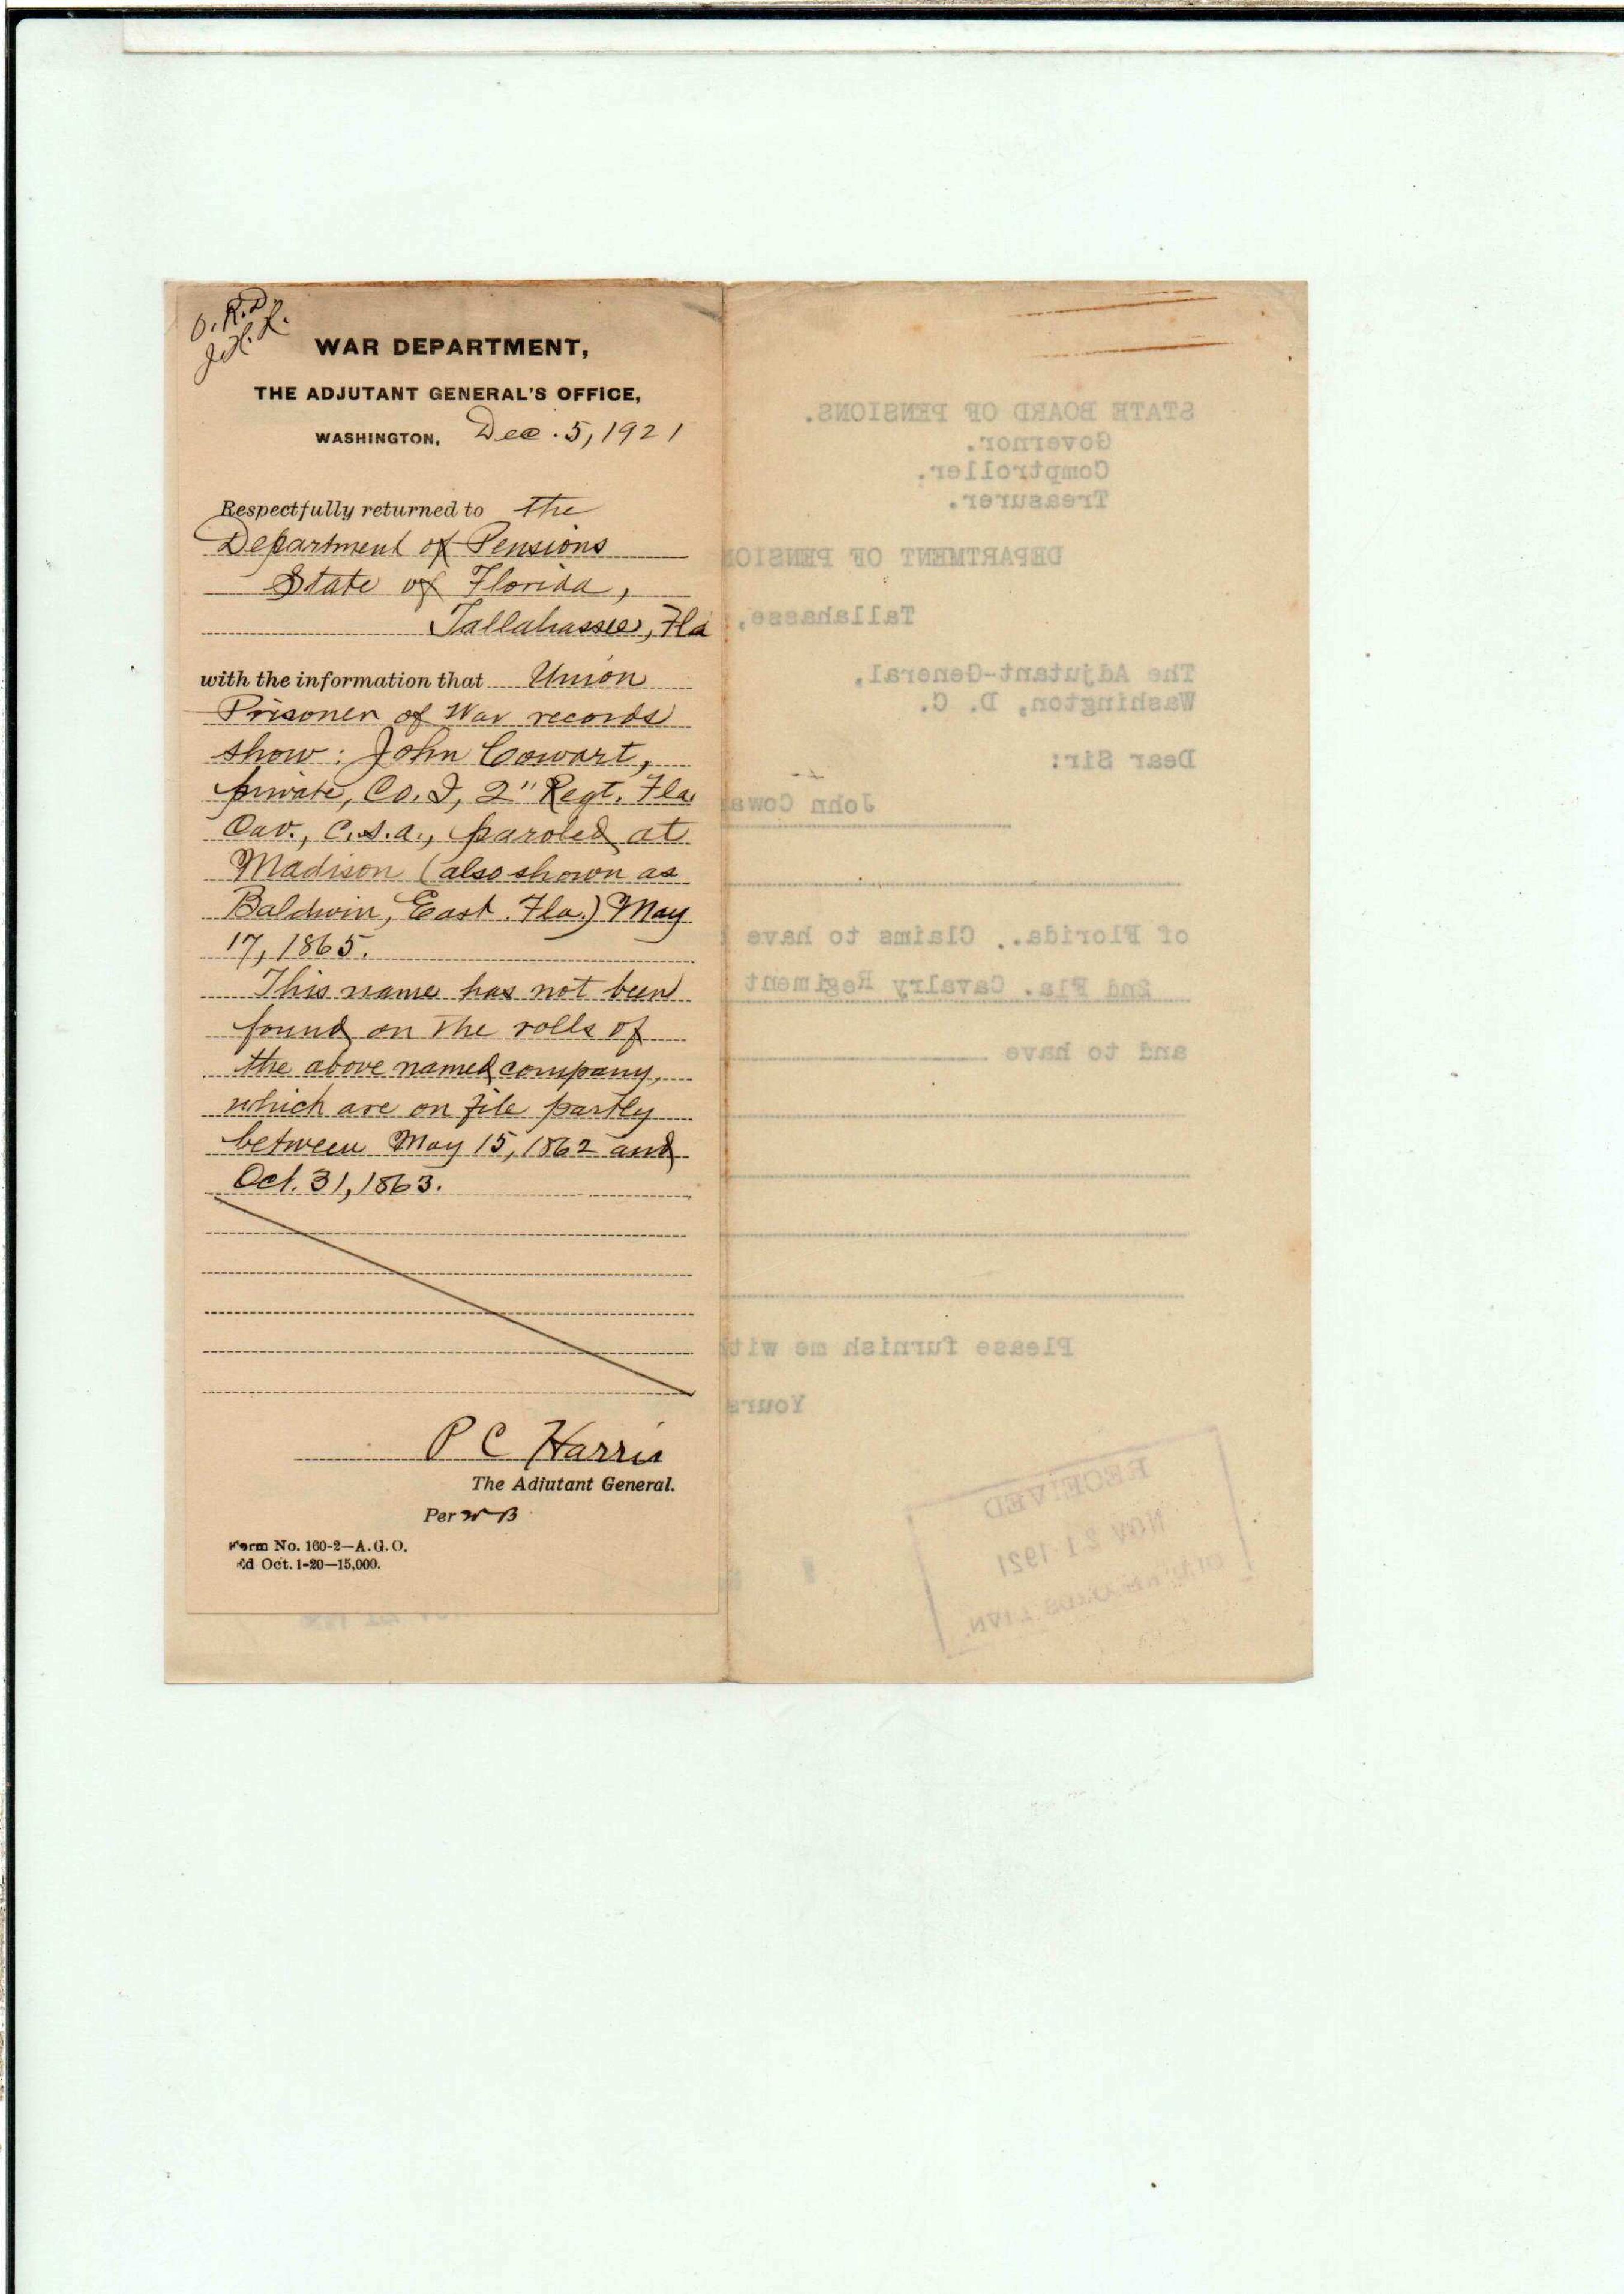 O.R.D.
WAR DEPARTMENT,
THE ADJUTANT GENERAL'S OFFICE,
WASHINGTON, Dec. 5, 1921
Respectfully returned to the
Department of Pensions
State of Florida,
Tallahassee, Fla
with the information that Union
Prisoner of War records
show: John Cowart,
private, Co. I, 2" Regt. Fla.
Cav., C.S.A., paroled at
Madison (also shown as
Baldwin, East. Fla.) May
17, 1865.
This name has not been
found on the rolls of
the above named company,
which are on file partly
between May 15, 1862 and
Oct. 31, 1863.
P C Harris
The Adjutant General.
Per W B
Form No. 160-2—A.G.O.
Ed Oct. 1-20—15,000.
STATE BOARD OF PENSIONS.
Governor.
Comptroller.
Treasurer.
DEPARTMENT OF PENSION
Tallahasse,
The Adjutant-General,
Washington, D. C.
Dear Sir:
John Cowa
of Florida.. Claims to have
2nd Fla. Cavalry Regiment
and to have
Please furnish me wit
Yours
RECEIVED
NOV 21 1921